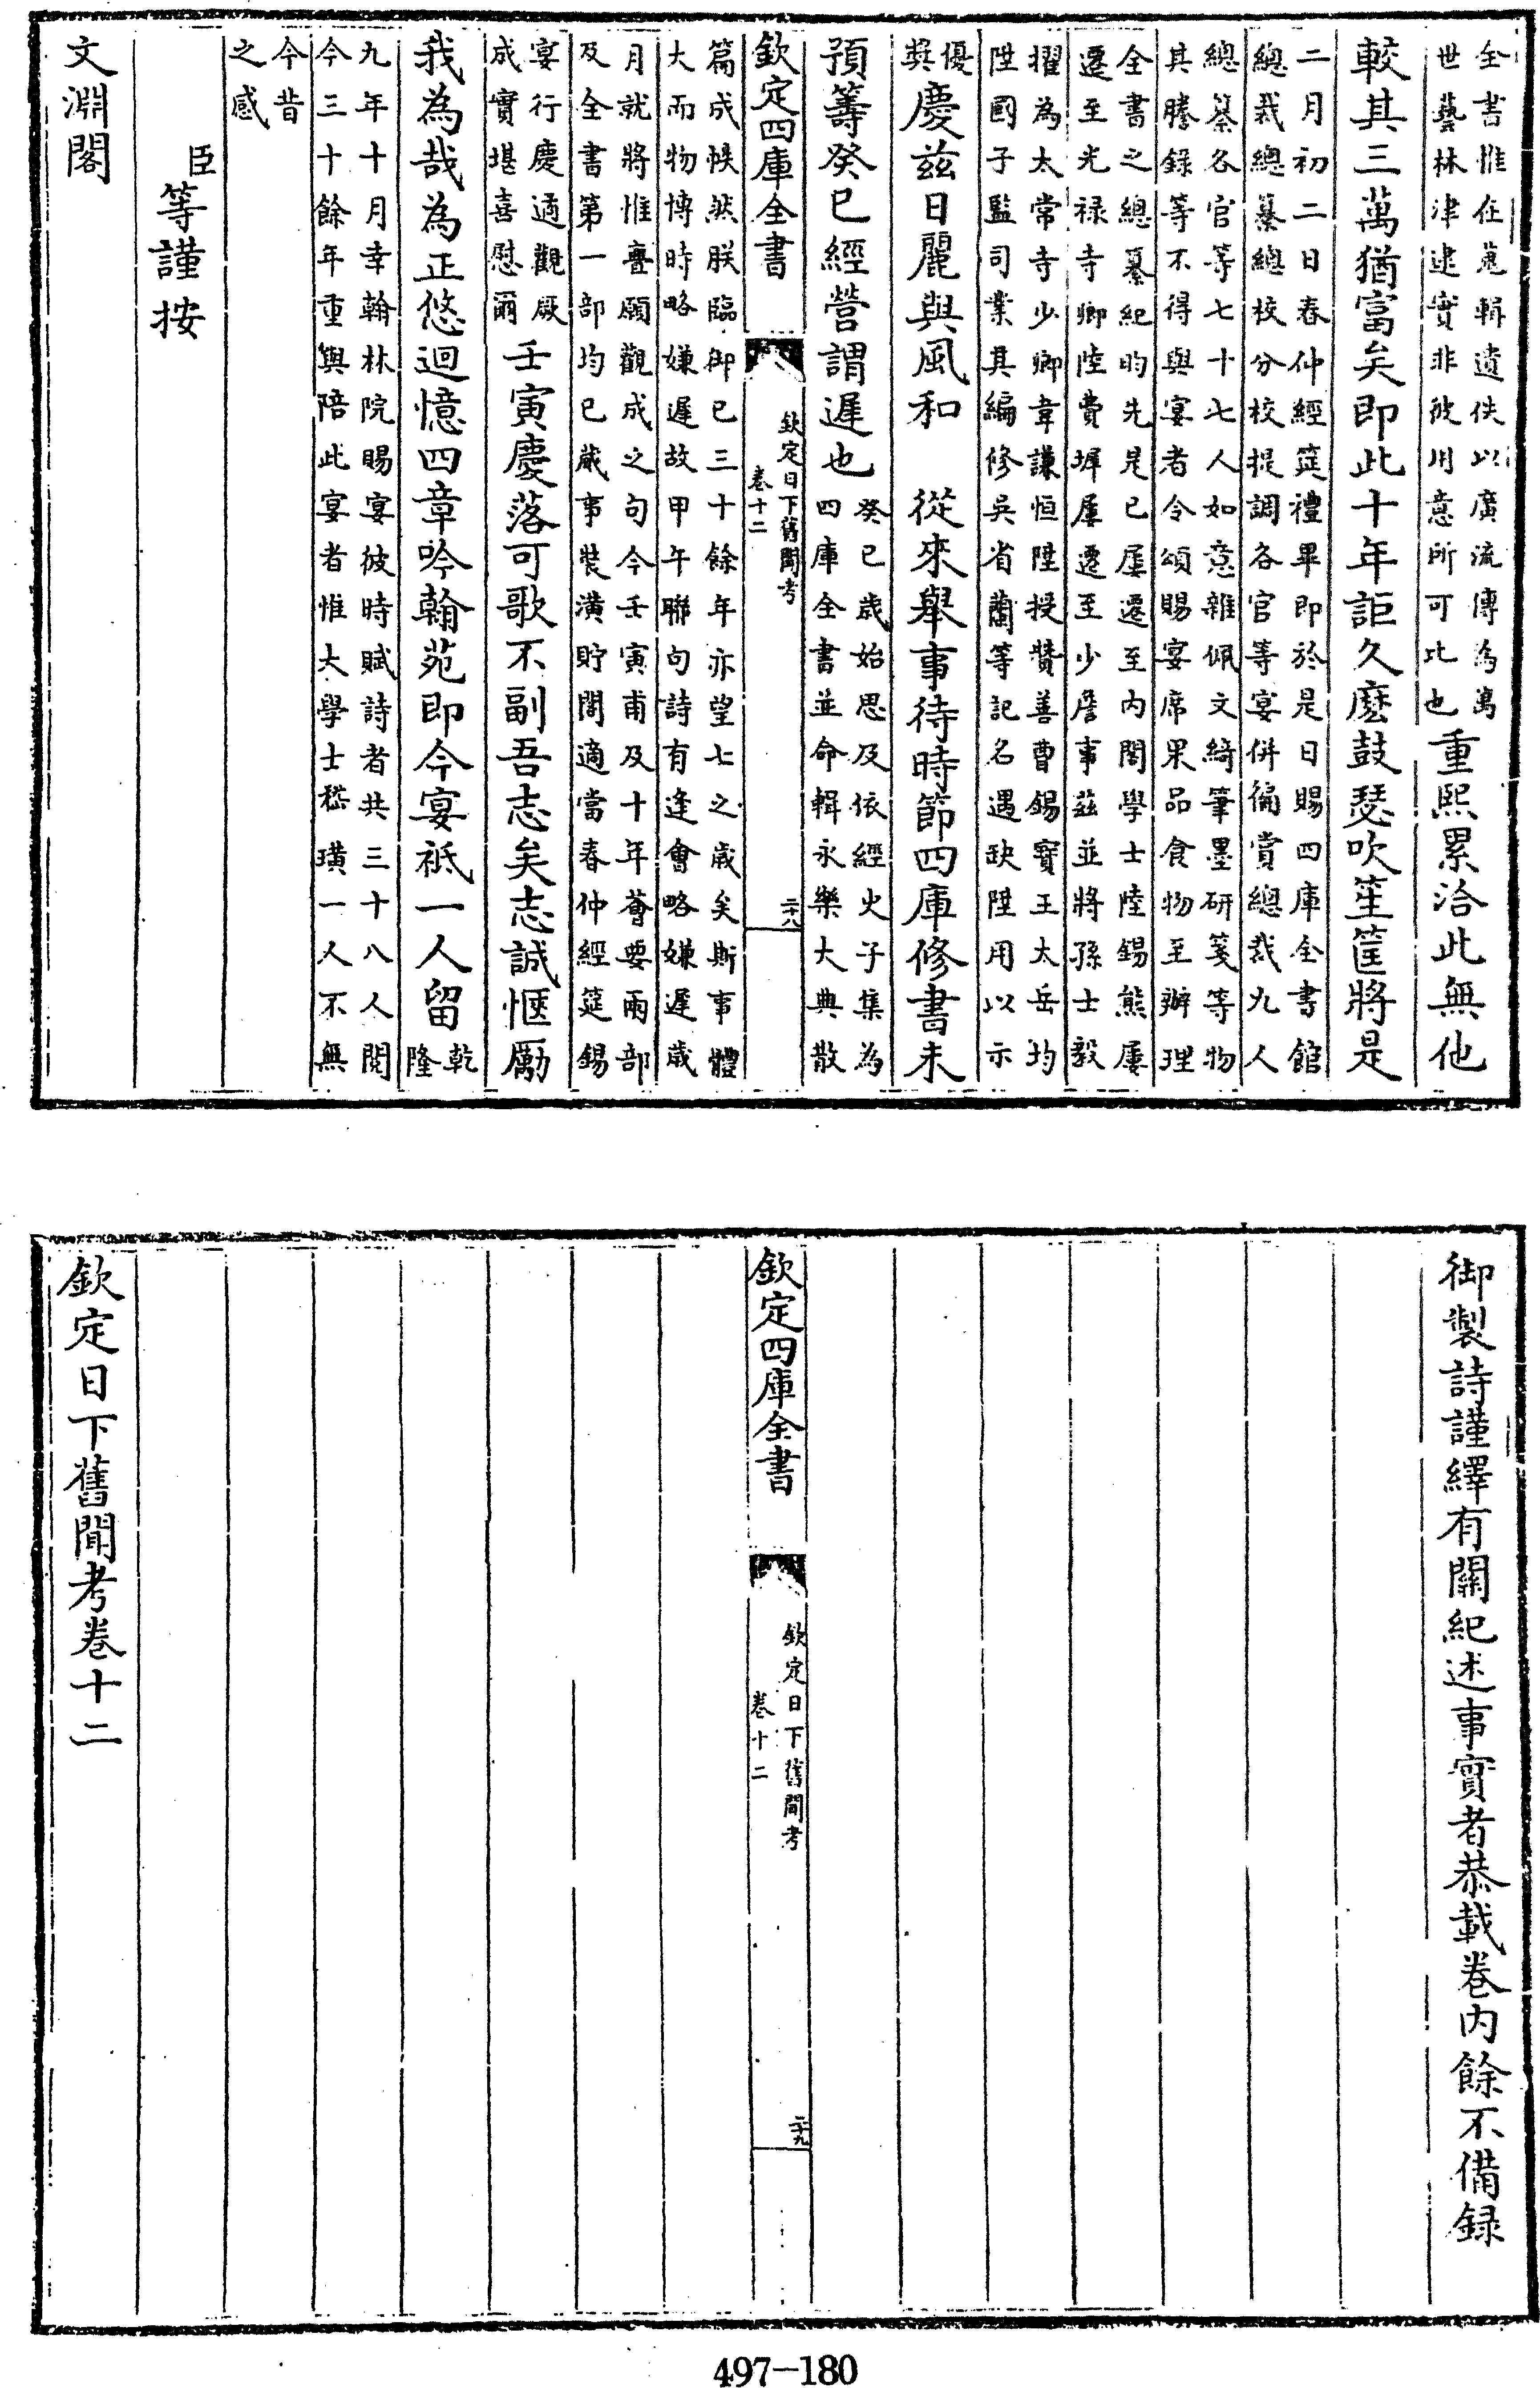 全書惟在蒐輯遺佚以廣流傳為萬
世藝林津逮實非彼用意所可比也
重熙累洽此無他
較其三萬猶富矣即此十年詎久麽鼓瑟吹笙筐將是
二月初二日春仲經筵禮畢即於是日賜四庫全書館
總裁總纂總校分校提調各官等宴併徧賞總裁九人
總纂各官等七十七人如意雜佩文綺筆墨研箋等物
其謄錄等不得與宴者令頒賜宴席果品食物至辦理
全書之總纂紀昀先是已屢遷至內閣學士陸錫熊屢
遷至光祿寺卿陸費墀屢遷至少詹事茲並將孫士毅
擢為太常寺少卿韋謙恒陞授贊善曹錫寶王太岳均
陞國子監司業其編修吳省蘭等記名遇缺陞用以示
優
獎
慶茲日麗與風和 從來舉事待時節四庫修書未
預籌癸巳經營謂遲也
癸巳歲始思及依經史子集為
四庫全書並命輯永樂大典散
欽定四庫全書
欽定日下舊聞考
卷十二
二十八
篇成帙然朕臨御已三十餘年亦望七之歲矣斯事體
大而物博時略嫌遲故甲午聯句詩有逢會略嫌遲歲
月就將惟亹願觀成之句今壬寅甫及十年薈要兩部
及全書第一部均已蕆事裝潢貯閣適當春仲經筵錫
宴行慶適觀厥
成實堪喜慰爾
壬寅慶落可歌不副吾志矣志誠愜勵
我為哉為正悠迴憶四章吟翰苑即今宴祗一人留
乾
隆
九年十月幸翰林院賜宴彼時賦詩者共三十八人閱
今三十餘年重與陪此宴者惟大學士嵇璜一人不無
今昔
之感
臣等謹按
文淵閣
御製詩謹繹有關紀述事實者恭載卷内餘不備録
欽定四庫全書
欽定日下舊聞考
卷十二
二十九
欽定日下舊聞考卷十二
497-180